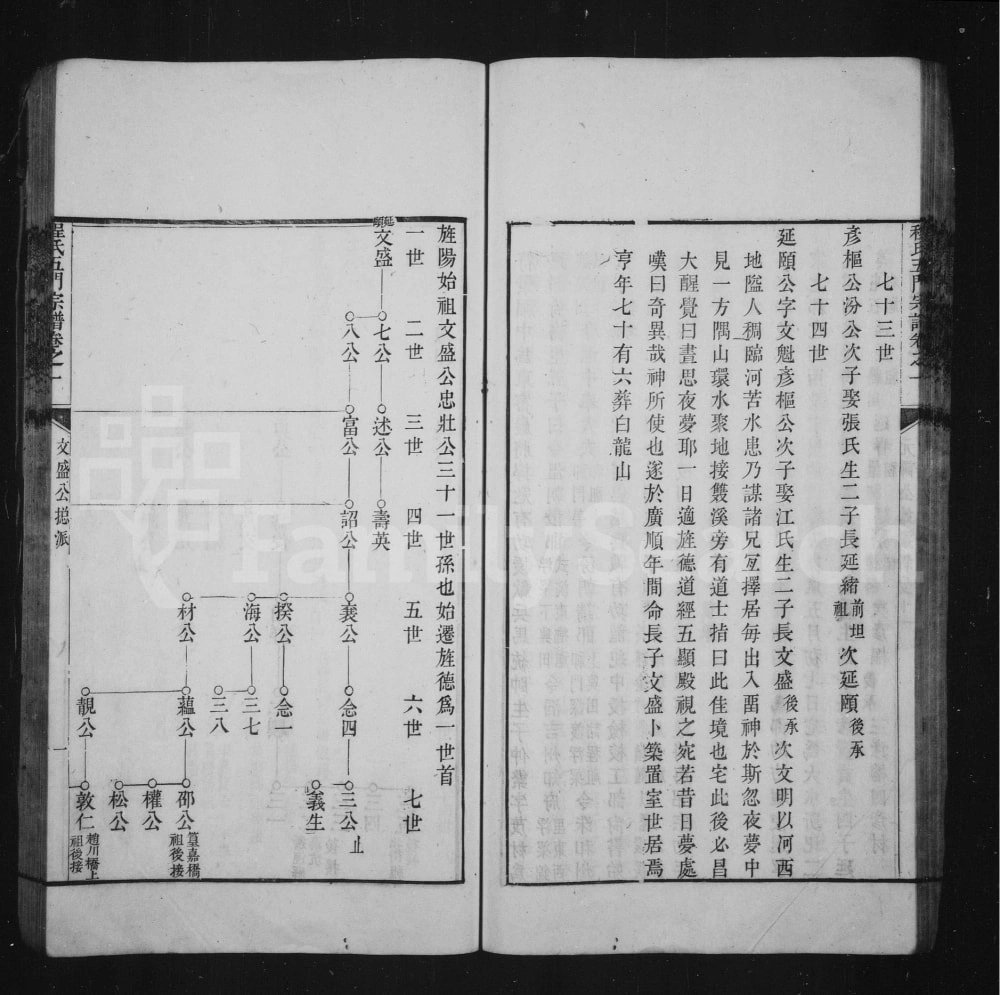 七十三世
彥樞公汾公次子娶張氏生二子長延緒前坦祖次延頤後承
七十四世
延頤公字文魁彥樞公次子娶江氏生二子長文盛後承次文明以河西
地隘人稠臨河苦水患乃謀諸兄互擇居每出入畱神於斯忽夜夢中
見一方隅山環水聚地接雙溪旁有道士指曰此佳境也宅此後必昌
大醒覺曰晝思夜夢耶一日適旌德道經五顯殿視之宛若昔日夢處
嘆曰奇異哉神所使也遂於廣順年間命長子文盛卜築置室世居焉
亨年七十有六葬白龍山
旌陽始祖文盛公忠壯公三十一世孫也始遷旌德爲一世首
一世 二世 三世 四世 五世 六世 七世
延頤
文盛 七公 述公 壽英
八公 富公 詔公 襄公 念四 三公 止
義生
揆公 念一
海公 三七
三八
材公 蘊公 邵公 篁嘉橋祖後接
權公
松公
靚公 敦仁 趙川橋上祖後接
程氏五門宗譜卷之一
文盛公摠派
一